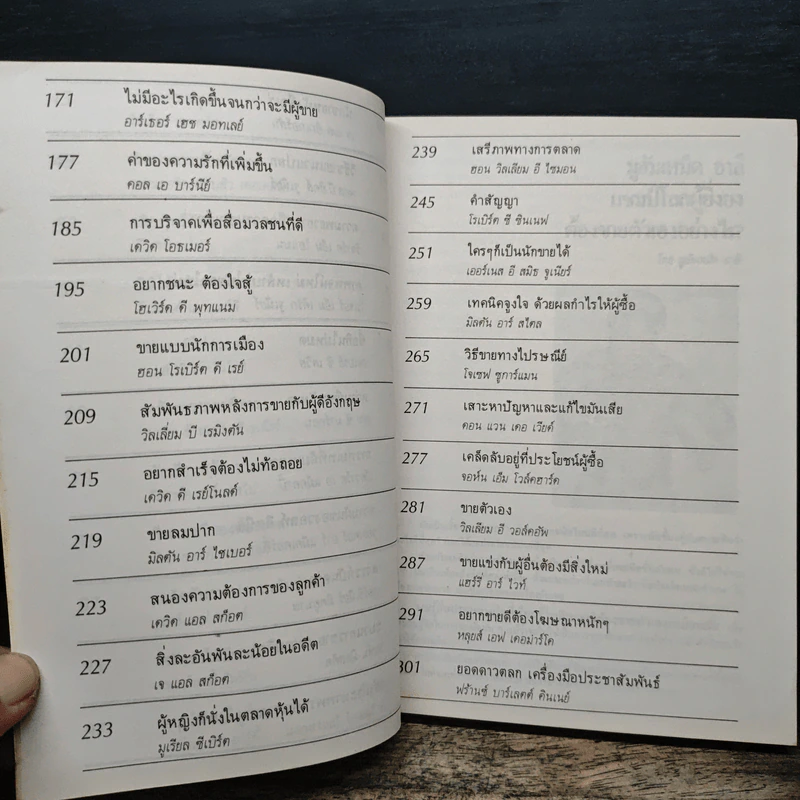 171 ไม่มีอะไรเกิดขึ้นจนกว่าจะมีผู้ขาย
อาร์เธอร์ เฮช มอทเลย์
177 ค่าของความรักที่เพิ่มขึ้น
คอล เอ บาร์นีย์
185 การบริจาคเพื่อสื่อมวลชนที่ดี
เดวิด โอธเมอร์
195 อยากชนะ ต้องใจสู้
โฮเวิร์ด ดี พุทแนม
201 ขายแบบนักการเมือง
ฮอน โรเบิร์ต ดี เรย์
209 สัมพันธภาพหลังการขายกับผู้ดีอังกฤษ
วิลเลี่ยม บี เรมิงตัน
215 อยากสำเร็จต้องไม่ท้อถอย
เดวิด ดี เรย์โนลด์
219 ขายลมปาก
มิลตัน อาร์ ไซเบอร์
223 สนองความต้องการของลูกค้า
เดวิด แอล สก็อต
227 สิ่งละอันพันละน้อยในอดีต
เจ แอล สก็อต
233 ผู้หญิงก็นั่งในตลาดหุ้นได้
มูเรียล ซีเบิร์ต
239 เสรีภาพทางการตลาด
ฮอน วิลเลียม อี ไซมอน
245 คำสัญญา
โรเบิร์ต ซี ซินเนฟ
251 ใครๆก็เป็นนักขายได้
เออร์เนส อี สมิธ จูเนียร์
259 เทคนิคจูงใจ ด้วยผลกำไรให้ผู้ซื้อ
มิลตัน อาร์ สไตล
265 วิธีขายทางไปรษณีย์
โจเซฟ ชูการ์แมน
271 เสาะหาปัญหาและแก้ไขมันเสีย
ดอน แวน เดอ เวียต์
277 เคล็ดลับอยู่ที่ประโยชน์ผู้ซื้อ
จอห์น เอ็ม โวล์คฮาร์ด
281 ขายตัวเอง
วิลเลียม อี วอล์คอัพ
287 ขายแข่งกับผู้อื่นต้องมีสิ่งใหม่
แฮร์รี อาร์ ไวท์
291 อยากขายดีต้องโฆษณาหนักๆ
หลุยส์ เอฟ เดอมาร์โค
301 ยอดดาวตลก เครื่องมือประชาสัมพันธ์
ฟรานซ์ บาร์เลตต์ คินเนย์